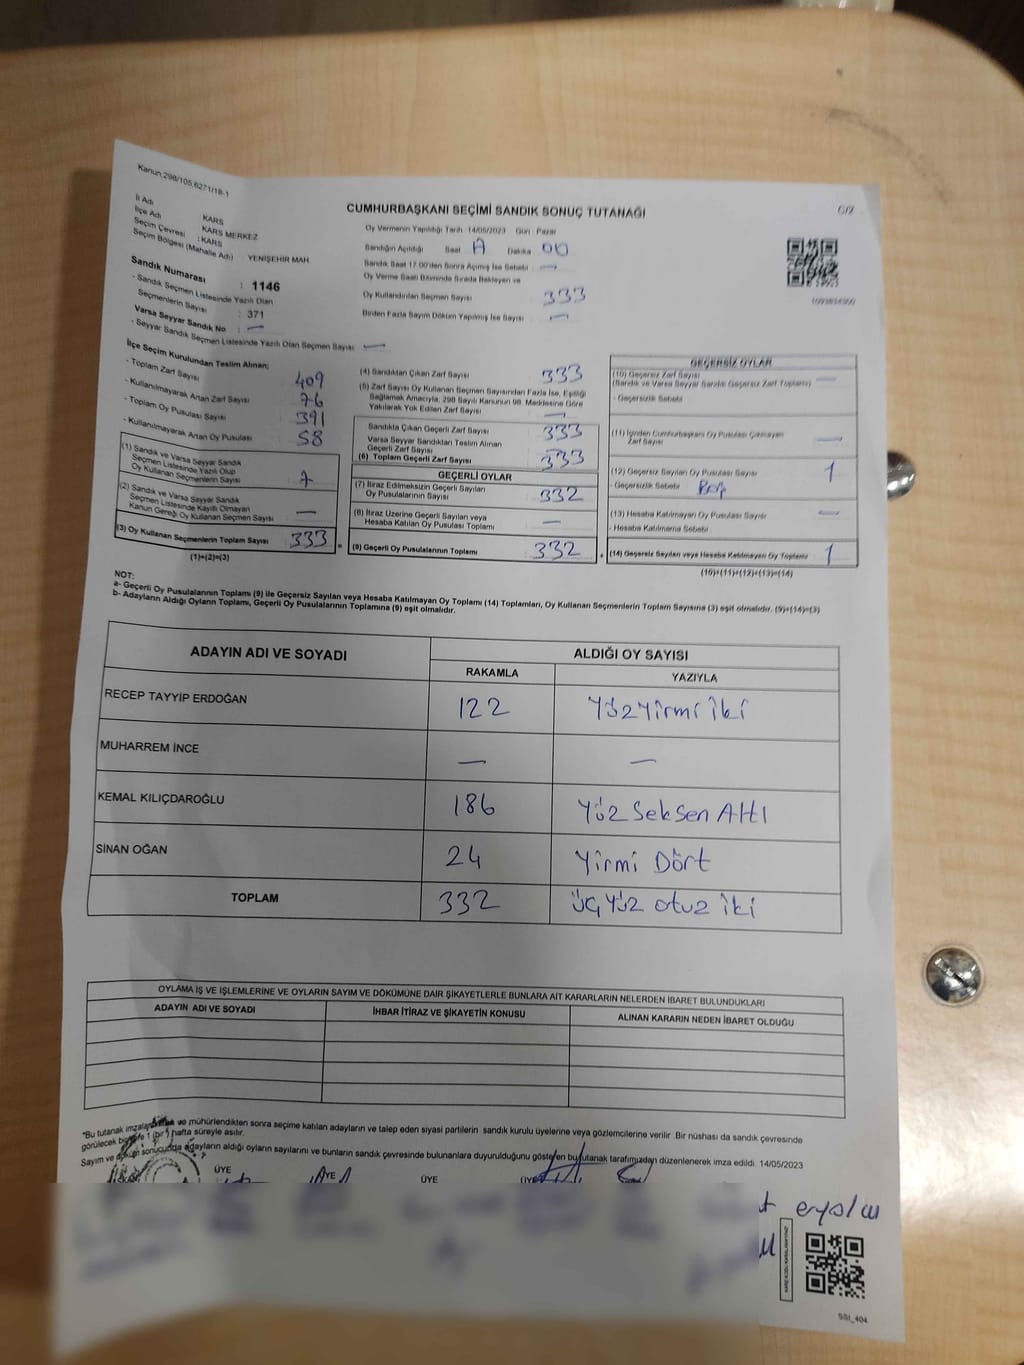 Kanun,298/105,6271/18-1
C/Z
CUMHURBAŞKANI SEÇİMİ SANDIK SONUÇ TUTANAĞI
İl Adı : KARS
İlçe Adı : KARS MERKEZ
Seçim Çevresi : KARS
Seçim Bölgesi (Mahalle Adı) YENİŞEHİR MAH
Sandık Numarası : 1146
- Sandık Seçmen Listesinde Yazılı Olan
Seçmenlerin Sayısı : 371
Varsa Seyyar Sandık No : —
- Seyyar Sandık Seçmen Listesinde Yazılı Olan Seçmen Sayısı —
Oy Vermenin Yapıldığı Tarih : 14/05/2023 Gün : Pazar
Sandığın Açıldığı Saat Dakika 00
Sandık Saat 17:00'den Sonra Açılmış İse Sebebi : —
Oy Verme Saati Bitiminde Sırada Bekleyen ve
Oy Kullandırılan Seçmen Sayısı 333
Birden Fazla Sayım Döküm Yapılmış İse Sayısı : —
İlçe Seçim Kurulundan Teslim Alınan;
- Toplam Zarf Sayısı 409
- Kullanılmayarak Artan Zarf Sayısı 76
- Toplam Oy Pusulası Sayısı 391
- Kullanılmayarak Artan Oy Pusulası 58
(1) Sandık ve Varsa Seyyar Sandık
Seçmen Listesinde Yazılı Olup
Oy Kullanan Seçmenlerin Sayısı
(2) Sandık ve Varsa Seyyar Sandık
Seçmen Listesinde Kayıtlı Olmayan
Kanun Gereği Oy Kullanan Seçmen Sayısı —
(3) Oy Kullanan Seçmenlerin Toplam Sayısı 333
(1)+(2)=(3)
(4) Sandıktan Çıkan Zarf Sayısı 333
(5) Zarf Sayısı Oy Kullanan Seçmen Sayısından Fazla İse, Eşitliği
Sağlamak Amacıyla, 298 Sayılı Kanunun 98. Maddesine Göre
Yakılarak Yok Edilen Zarf Sayısı —
Sandıkta Çıkan Geçerli Zarf Sayısı 333
Varsa Seyyar Sandıktan Teslim Alınan
Geçerli Zarf Sayısı
(6) Toplam Geçerli Zarf Sayısı 333
GEÇERLİ OYLAR
(7) İtiraz Edilmeksizin Geçerli Sayılan
Oy Pusulalarının Sayısı 332
(8) İtiraz Üzerine Geçerli Sayılan veya
Hesaba Katılan Oy Pusulası Toplamı —
(9) Geçerli Oy Pusulalarının Toplamı 332
GEÇERSİZ OYLAR
(10) Geçersiz Zarf Sayısı —
(Sandık ve Varsa Seyyar Sandık Geçersiz Zarf Toplamı)
- Geçersizlik Sebebi
(11) İçinden Cumhurbaşkanı Oy Pusulası Çıkmayan
Zarf Sayısı —
(12) Geçersiz Sayılan Oy Pusulası Sayısı 1
- Geçersizlik Sebebi
(13) Hesaba Katılmayan Oy Pusulası Sayısı —
- Hesaba Katılmama Sebebi
(14) Geçersiz Sayılan veya Hesaba Katılmayan Oy Toplamı 1
(10)+(11)+(12)+(13)=(14)
NOT:
a- Geçerli Oy Pusulalarının Toplamı (9) ile Geçersiz Sayılan veya Hesaba Katılmayan Oy Toplamı (14) Toplamları, Oy Kullanan Seçmenlerin Toplam Sayısına (3) eşit olmalıdır. (9)+(14)=(3)
b- Adayların Aldığı Oyların Toplamı, Geçerli Oy Pusulalarının Toplamına (9) eşit olmalıdır.
ADAYIN ADI VE SOYADI ALDIĞI OY SAYISI
RAKAMLA YAZIYLA
RECEP TAYYİP ERDOĞAN 122 Yüz Yirmi İki
MUHARREM İNCE — —
KEMAL KILIÇDAROĞLU 186 Yüz Seksen Altı
SİNAN OĞAN 24 Yirmi Dört
TOPLAM 332 Üç Yüz otuz İki
OYLAMA İŞ VE İŞLEMLERİNE VE OYLARIN SAYIM VE DÖKÜMÜNE DAİR ŞİKAYETLERLE BUNLARA AİT KARARLARIN NELERDEN İBARET BULUNDUKLARI
ADAYIN ADI VE SOYADI İHBAR İTİRAZ VE ŞİKAYETİN KONUSU ALINAN KARARIN NEDEN İBARET OLDUĞU
"Bu tutanak ve mühürlendikten sonra seçime katılan adayların ve talep eden siyasi partilerin sandık kurulu üyelerine veya gözlemcilerine verilir .Bir nüshası da sandık çevresinde
görülecek bir 1 (bir) hafta süreyle asılır.
Sayım ve sonucunda adayların aldığı oyların sayılarını ve bunların sandık çevresinde bulunanlara duyurulduğunu gösteren bu tutanak tarafımızdan düzenlenerek imza edildi. 14/05/2023
ÜYE ÜYE ÜYE
SSI_404